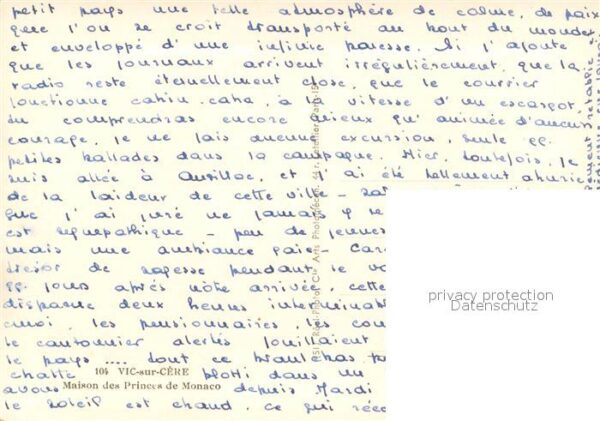 petit pays une telle atmosphère de calme, de paix
que l'on se croit transporté au bout du monde
et enveloppé d'une infinie paresse. Si j'ajoute
que les journaux arrivent irrégulièrement, que la
radio reste éternellement close, que le courrier
fonctionne cahin-caha, à la vitesse d'un escargot,
tu comprendras encore mieux qu'animée d'aucun
courage, je ne fais aucune excursion, seule qq.
petites ballades dans la campagne. Hier, toutefois, je
suis allée à Aurillac, et j'ai été tellement ahurie
de la laideur de cette ville -
que j'ai juré ne jamais y
est sympathique - peu de jeunes
mais une ambiance gaie -
trésor de sagesse pendant le
qq jours après nôtre arrivée, cette
disparue deux heures
moi, les pensionnaires, les
le cantonnier alertés fouillaient
le pays .... dont ce
chatte blotti dans un
104 VIC-sur-CÈRE
Maison des Princes de Monaco
avons depuis Mardi
le soleil est chaud, ce qui
privacy protection
Datenschutz